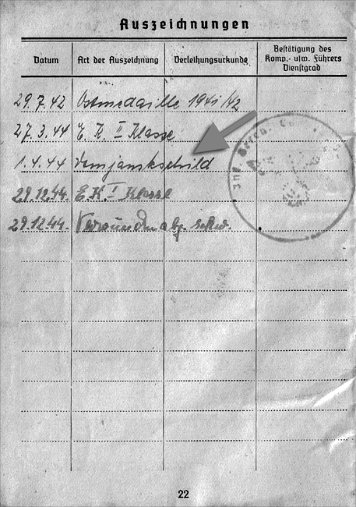 Auszeichnungen
Datum Art der Auszeichnung Verleihungsurkunde Bestätigung des Komp.- usw. Führers Dienstgrad
29.7.42 Ostmedaille 1941/42
27.3.44 E. K. II Klasse
1.4.44 Demjanskschild
29.12.44. E.K. I Klasse
29.12.44. Verwundetenabz. schw.
22